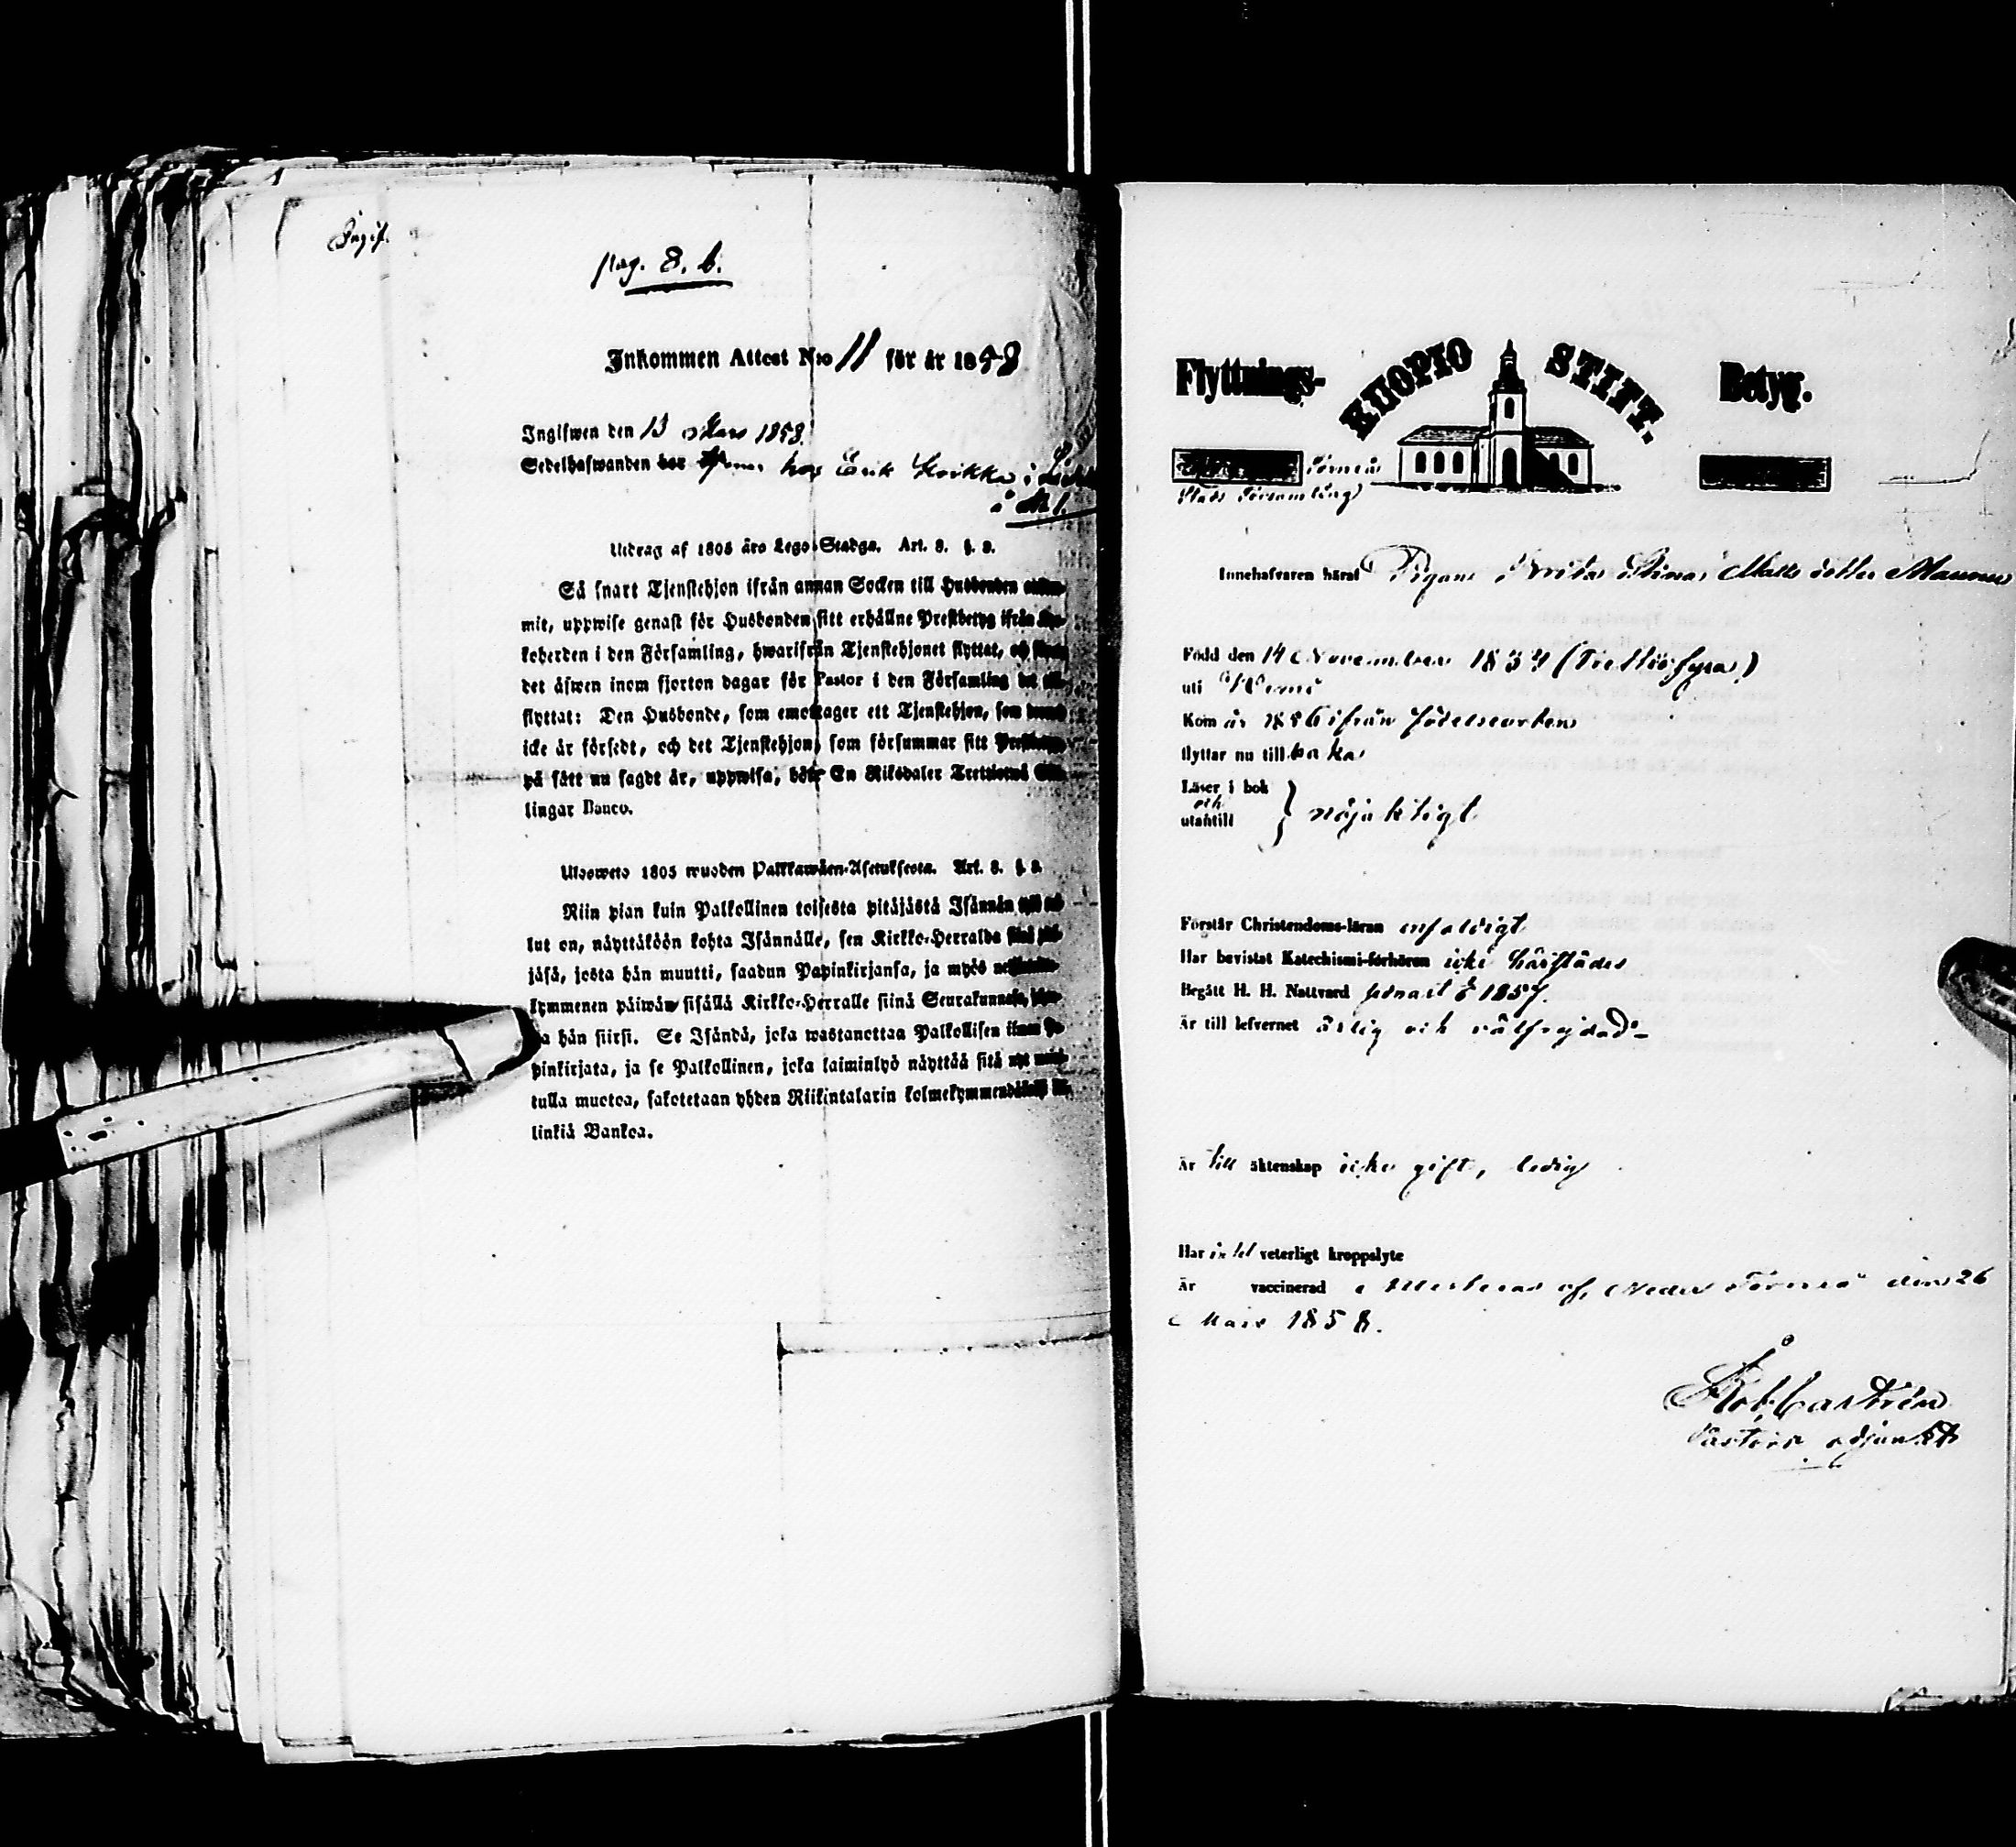 Ingif.
pag. 8. b.
Inkommen Attest N:o 11 för år 1858
Ingifwen den 13 Mars 1858.
Sedelhafwanden hos Erik i
i № 1.
Utdrag af 1805 års Lego-Stadga. Art. 8. §. 9.
Så snart Tjenstehjon ifrån annan Socken till Husbonden
mit, uppwise genast för Husbonden sitt erhållne Prestbetyg ifrån
koherden i den Församling, hwarifrån Tjenstehjonet flyttat, och
det äfwen inom fjorton dagar för Pastor i den Församling det
flyttat: Den Husbonde, som emottager ett Tjenstehjon, som
icke är försedt, och det Tjenstehjon, som försummar sitt
på sätt nu sagdt är, uppwisa, böte En Riksdaler Trettiotwå
lingar Banco.
Ulosweto 1805 wuoden Palkkawäen-Asetuksesta. Art. 8. §. 9.
Niin pian kuin Palkollinen toisesta pitäjästä Isännän
lut on, näyttäköön kohta Isännälle, sen Kirkko-Herralda
jäsä, josta hän muutti, saadun Papinkirjansa, ja myös
kymmenen päiwän sisällä Kirkko-Herralle siinä Seurakunnasa,
a hän siirsi. Se Isändä, joka wastanottaa Palkollisen ilman
pinkirjata, ja se Palkollinen, joka laiminlyö näyttää sitä nyt
tulla muotoa, sakotetaan yhden Riikintalarin kolmekymmendäkaksi
linkiä Bankoa.
Flyttnings- KUOPIO STIFT. Betyg.
Torneå
Stads Församling
Innehafvaren häraf Pigan Brita Stina Matts dotter
Född den 14 November 1834 (Trettiofyra)
uti
Kom år 1856 ifrån födelseorten
flyttar nu tillbaka
Läser i bok
och
utantill } nöjaktigt
Förstår Christendoms-läran enfaldigt
Har bevistat Katechismi-förhören icke härstädes
Begått H. H. Nattvard 1857.
Är till lefvernet ärlig och välfrejdad
Är till äktenskap icke gift, ledig
Har intet veterligt kroppslyte
Är vaccinerad Attesteras af, Neder Torneå den 26
Mars 1858.
Rob. Castrén
Pastors adjunkt